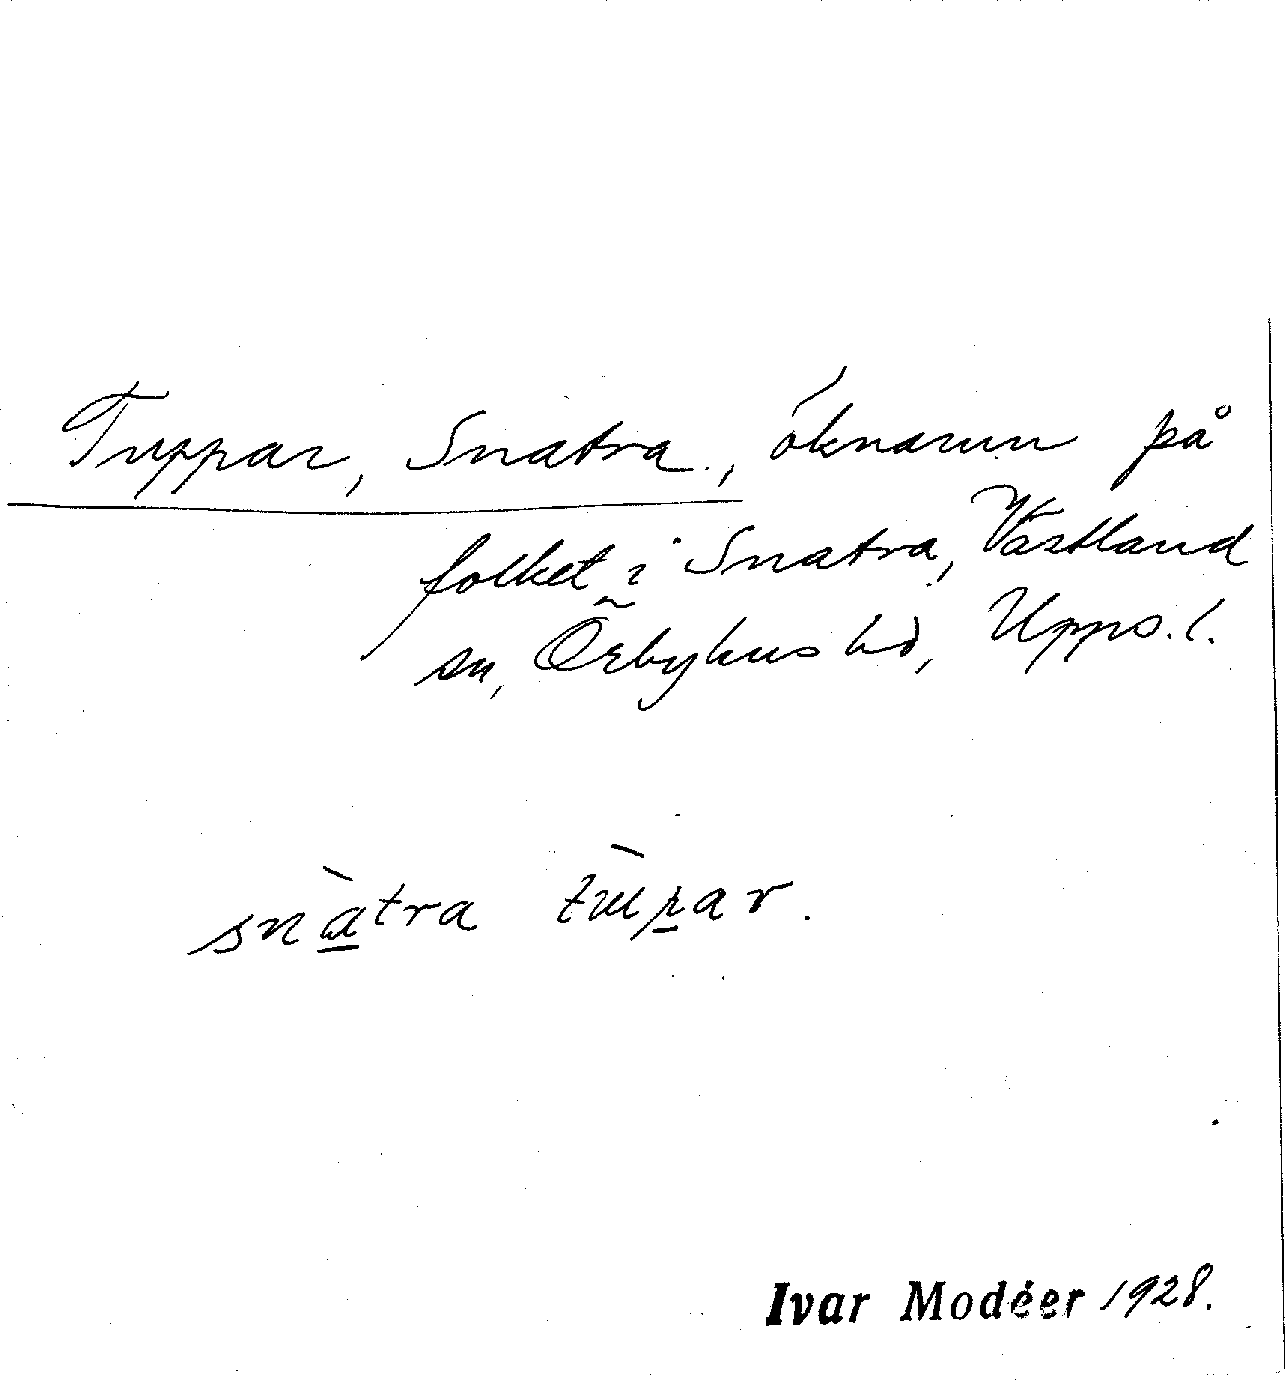 Tuppar, Snatra, öknamn på
folket i Snatra, Västland
sn, Örbyhus hd, Upps. l.
snàtra tùpar.
Ivar Modéer 1928.